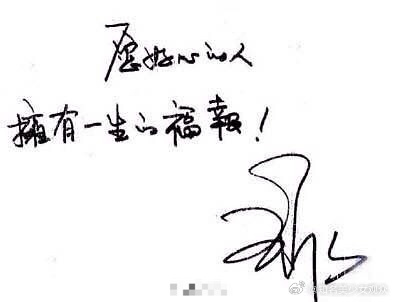 愿好心的人
擁有一生的福報！